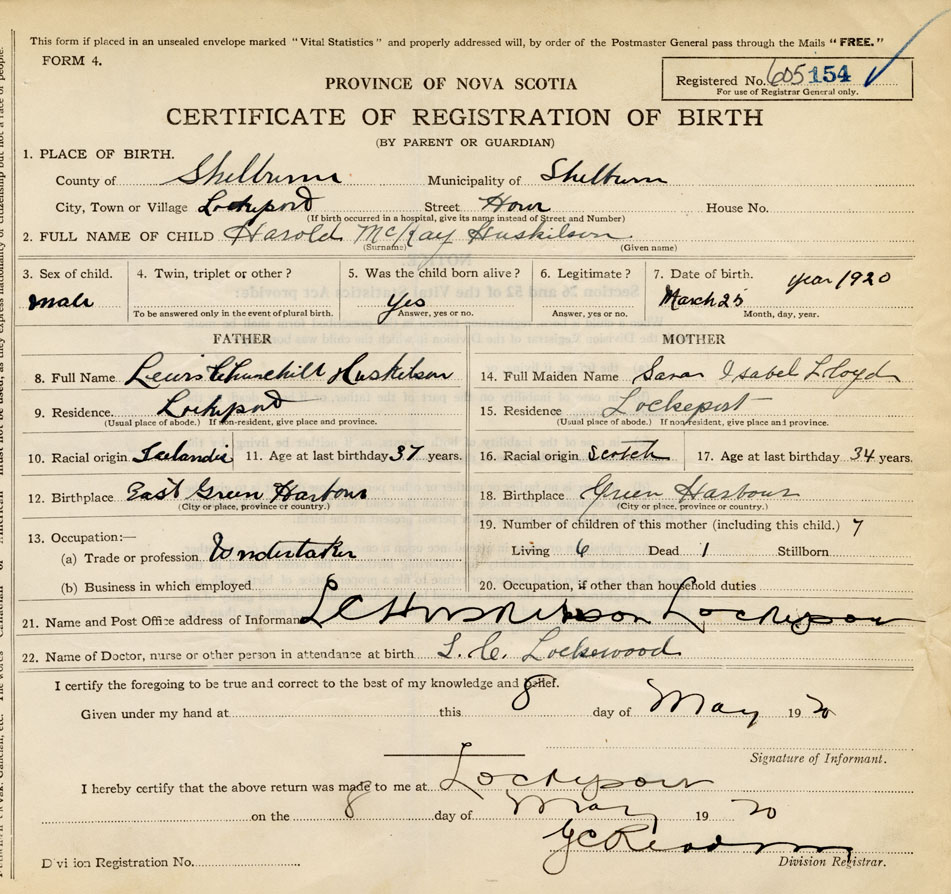 This form if placed in an unsealed envelope marked "Vital Statistics" and properly addressed will, by order of the Postmaster General pass through the Mails "FREE."
FORM 4.
Registered No. 605154
For use of Registrar General only.
PROVINCE OF NOVA SCOTIA
CERTIFICATE OF REGISTRATION OF BIRTH
(BY PARENT OR GUARDIAN)
1. PLACE OF BIRTH.
County of Shelburne Municipality of Shelburn
City, Town or Village Lockeport Street House No.
(If birth occurred in a hospital, give its name instead of Street and Number)
2. FULL NAME OF CHILD Harold McKay Huskilson
(Surname) (Given name)
3. Sex of child. 4. Twin, triplet or other? 5. Was the child born alive? 6. Legitimate? 7. Date of birth. year 1920
male Yes March 25
To be answered only in the event of plural birth. Answer, yes or no. Answer, yes or no. Month, day, year.
FATHER MOTHER
8. Full Name Lewis Churchill Huskilson 14. Full Maiden Name Sarar Isabel Lloyd
9. Residence. Lockeport 15. Residence Lockeport
(Usual place of abode.) If non-resident, give place and province. (Usual place of abode.) If non-resident, give place and province.
10. Racial origin 11. Age at last birthday 37 years. 16. Racial origin Scotch 17. Age at last birthday 34 years.
12. Birthplace East Green Harbour 18. Birthplace Green Harbour
(City or place, province or country.) (City or place, province or country.)
13. Occupation:— 19. Number of children of this mother (including this child.) 7
(a) Trade or profession Undertaker Living 6 Dead 1 Stillborn
(b) Business in which employed 20. Occupation, if other than household duties
21. Name and Post Office address of Informant L C Huskilson Lockeport
22. Name of Doctor, nurse or other person in attendance at birth L. C. Lockewood
I certify the foregoing to be true and correct to the best of my knowledge and belief.
Given under my hand at this 8 day of May 19 20
Signature of Informant.
I hereby certify that the above return was made to me at Lockeport
on the 8 day of May 19 20
Division Registration No. Division Registrar.